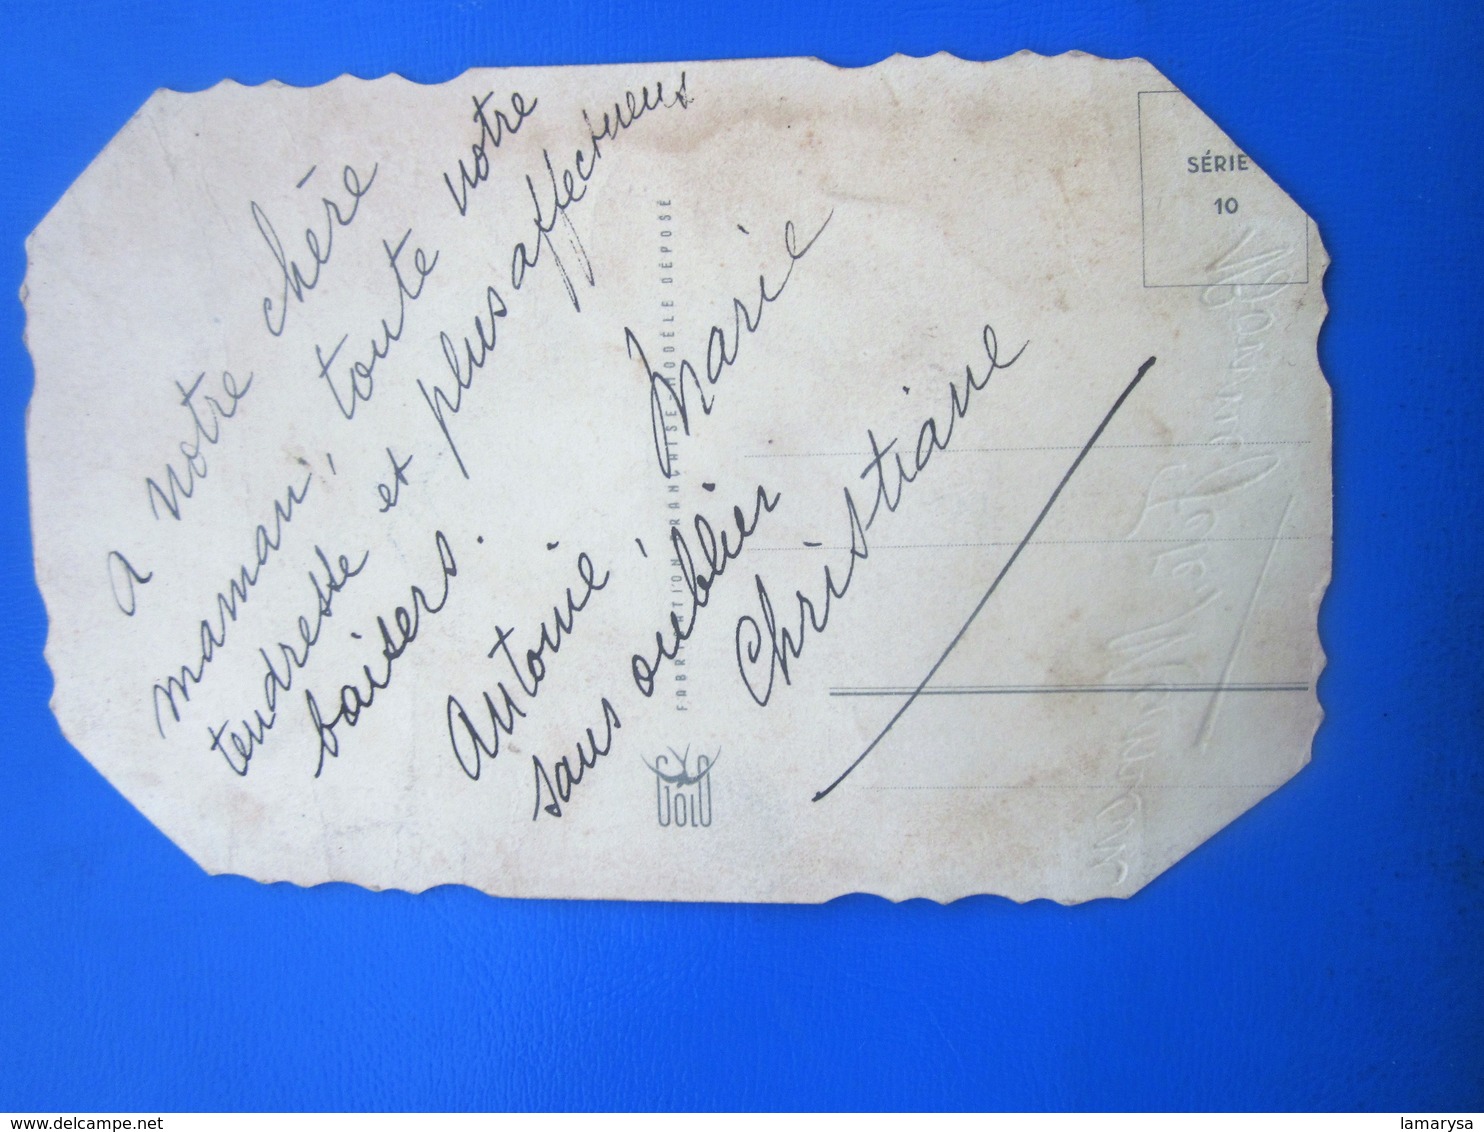 A notre chère
maman, toute notre
tendresse et plus affectueux
baisers.
Antoine, Marie
sans oublier
Christiane
SÉRIE
10
FABRICATION FRANÇAISE - MODÈLE DÉPOSÉ
Bonne
Fête Maman
lamarysa